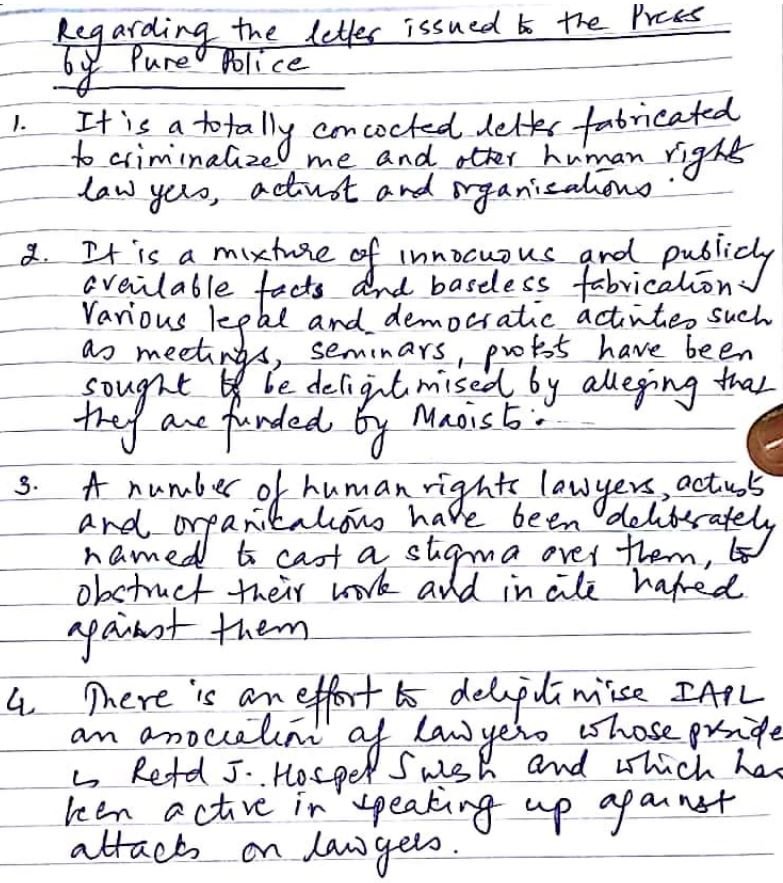 Regarding the letter issued to the Press
by Pune Police
1. It is a totally concocted letter fabricated
to criminalize me and other human right
lawyers, activist and organisations.
2. It is a mixture of innocuous and publicly
available facts and baseless fabrication
Various legal and democratic activities such
as meetings, seminars, protest have been
sought to be deligitimised by alleging that
they are funded by Maoists.
3. A number of human rights lawyers, activists
and organizations have been deliberately
named to cast a stigma over them, to
obstruct their work and incite hatred
against them
4 There is an effort to deligitimise IAPL
an association of lawyers whose preside
is Retd J. Hospet Suresh and which has
been active in speaking up against
attacks on lawyers.